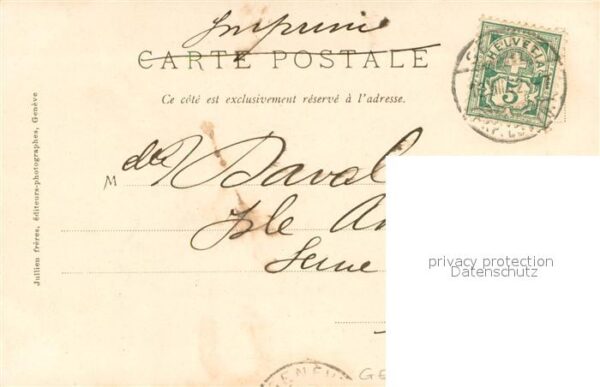 Imprimé
CARTE POSTALE
Ce côté est exclusivement réservé à l'adresse.
HELVETIA
5
M
Isle
Seine
privacy protection
Datenschutz
Jullien frères, éditeurs-photographes, Genève
GENÈV
GE